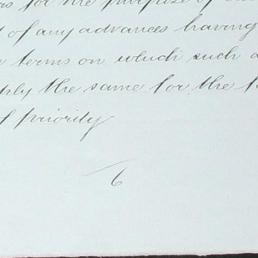 for the purpose of
of any advances having
terms on which such
the same for the
of priority
6